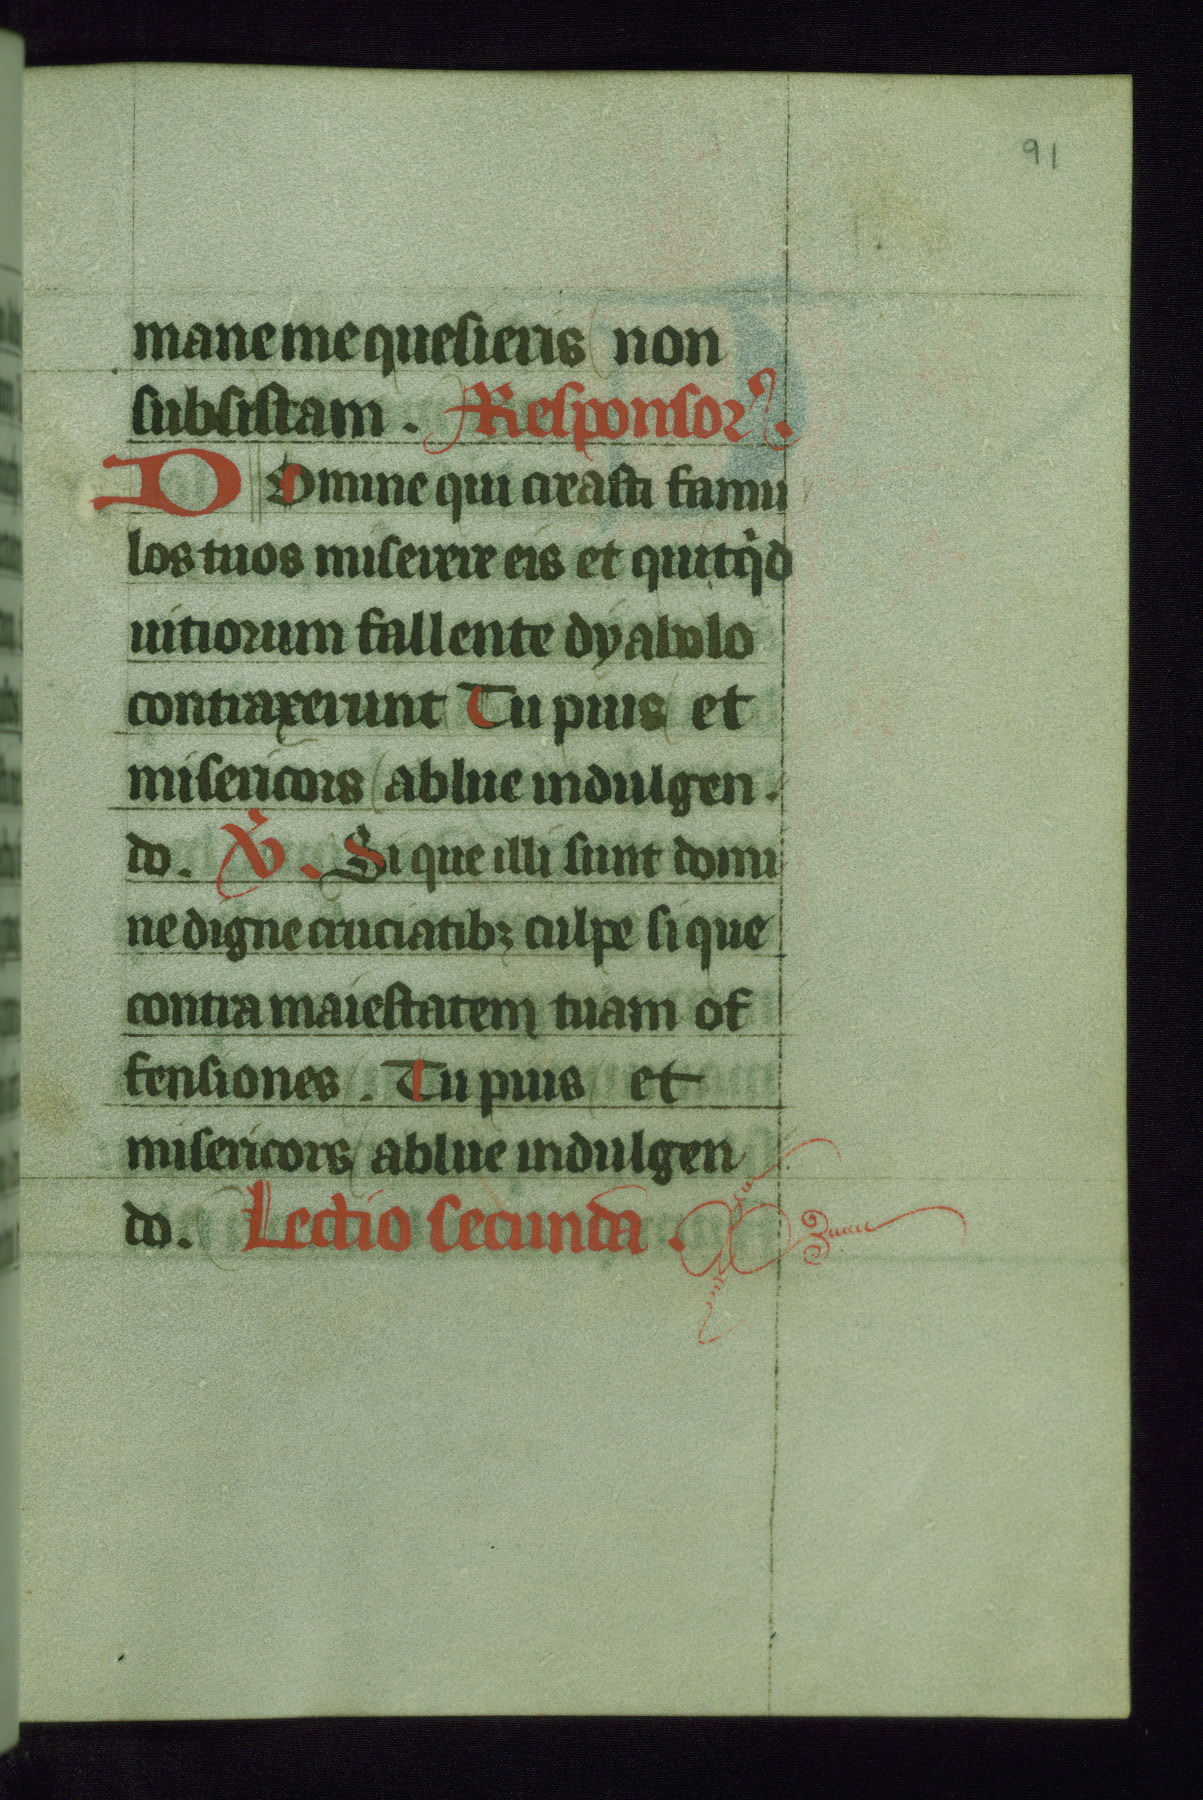 91
mane me quesieris non
subsistam. Responsor.
D Domine qui creasti famu
los tuos miserere eis et quitqd
uitiorum fallente dyabolo
contraxerunt Tu pius et
misericors ablue indulgen.
do. V. Si que illi sunt domi
ne digne cruciatib; culpe si que
contra maiestatem tuam of
fensiones. Tu pius et
misericors ablue indulgen
do. Lectio secunda.